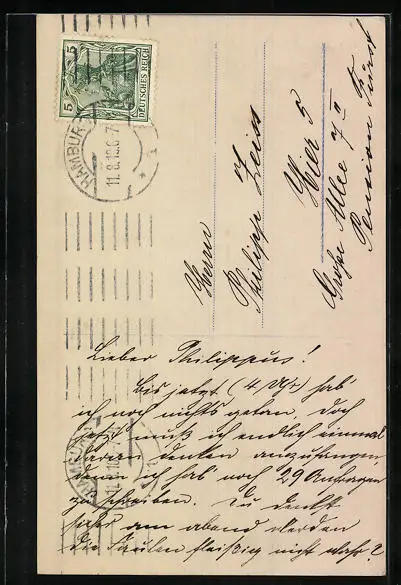 5 5
DEUTSCHES REICH
HAMBURG
11.8.10.6-7
* 1
Herrn
Philipp Zeiss
Hier 5
Große Allee 7 II
Pension Fürst
Lieber Philippus!
Bis jetzt (4 Uhr) hab
ich noch nichts getan. Doch
jetzt muß ich endlich einmal
daran denken anzufangen,
denn ich hab noch 29 Anfragen
zu schreiben. Du denkst
am abend werden
die Faulen fleißig nicht wahr?
HAMBURG